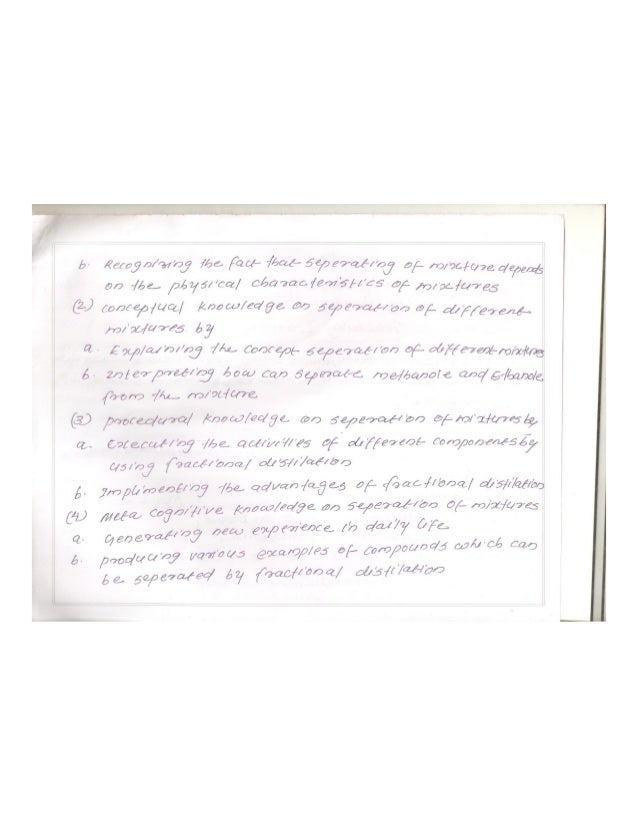 b. Recognizing the fact that seperating of mixture depends
on the physical characteristics of mixtures
(2) conceptual knowledge on seperation of different
mixtures by
a. Explaining the concept seperation of different mixtures
b. Interpreting how can seperate methanole and Ethanole
from the mixture
(3) procedural knowledge on seperation of mixtures by
a. Executing the activities of different components by
using fractional distilation
b. Implimenting the advantages of fractional distilation
(4) Meta cognitive knowledge on seperation of mixtures
a. Generating new experience in daily life
b. producing various examples of compounds which can
be seperated by fractional distilation